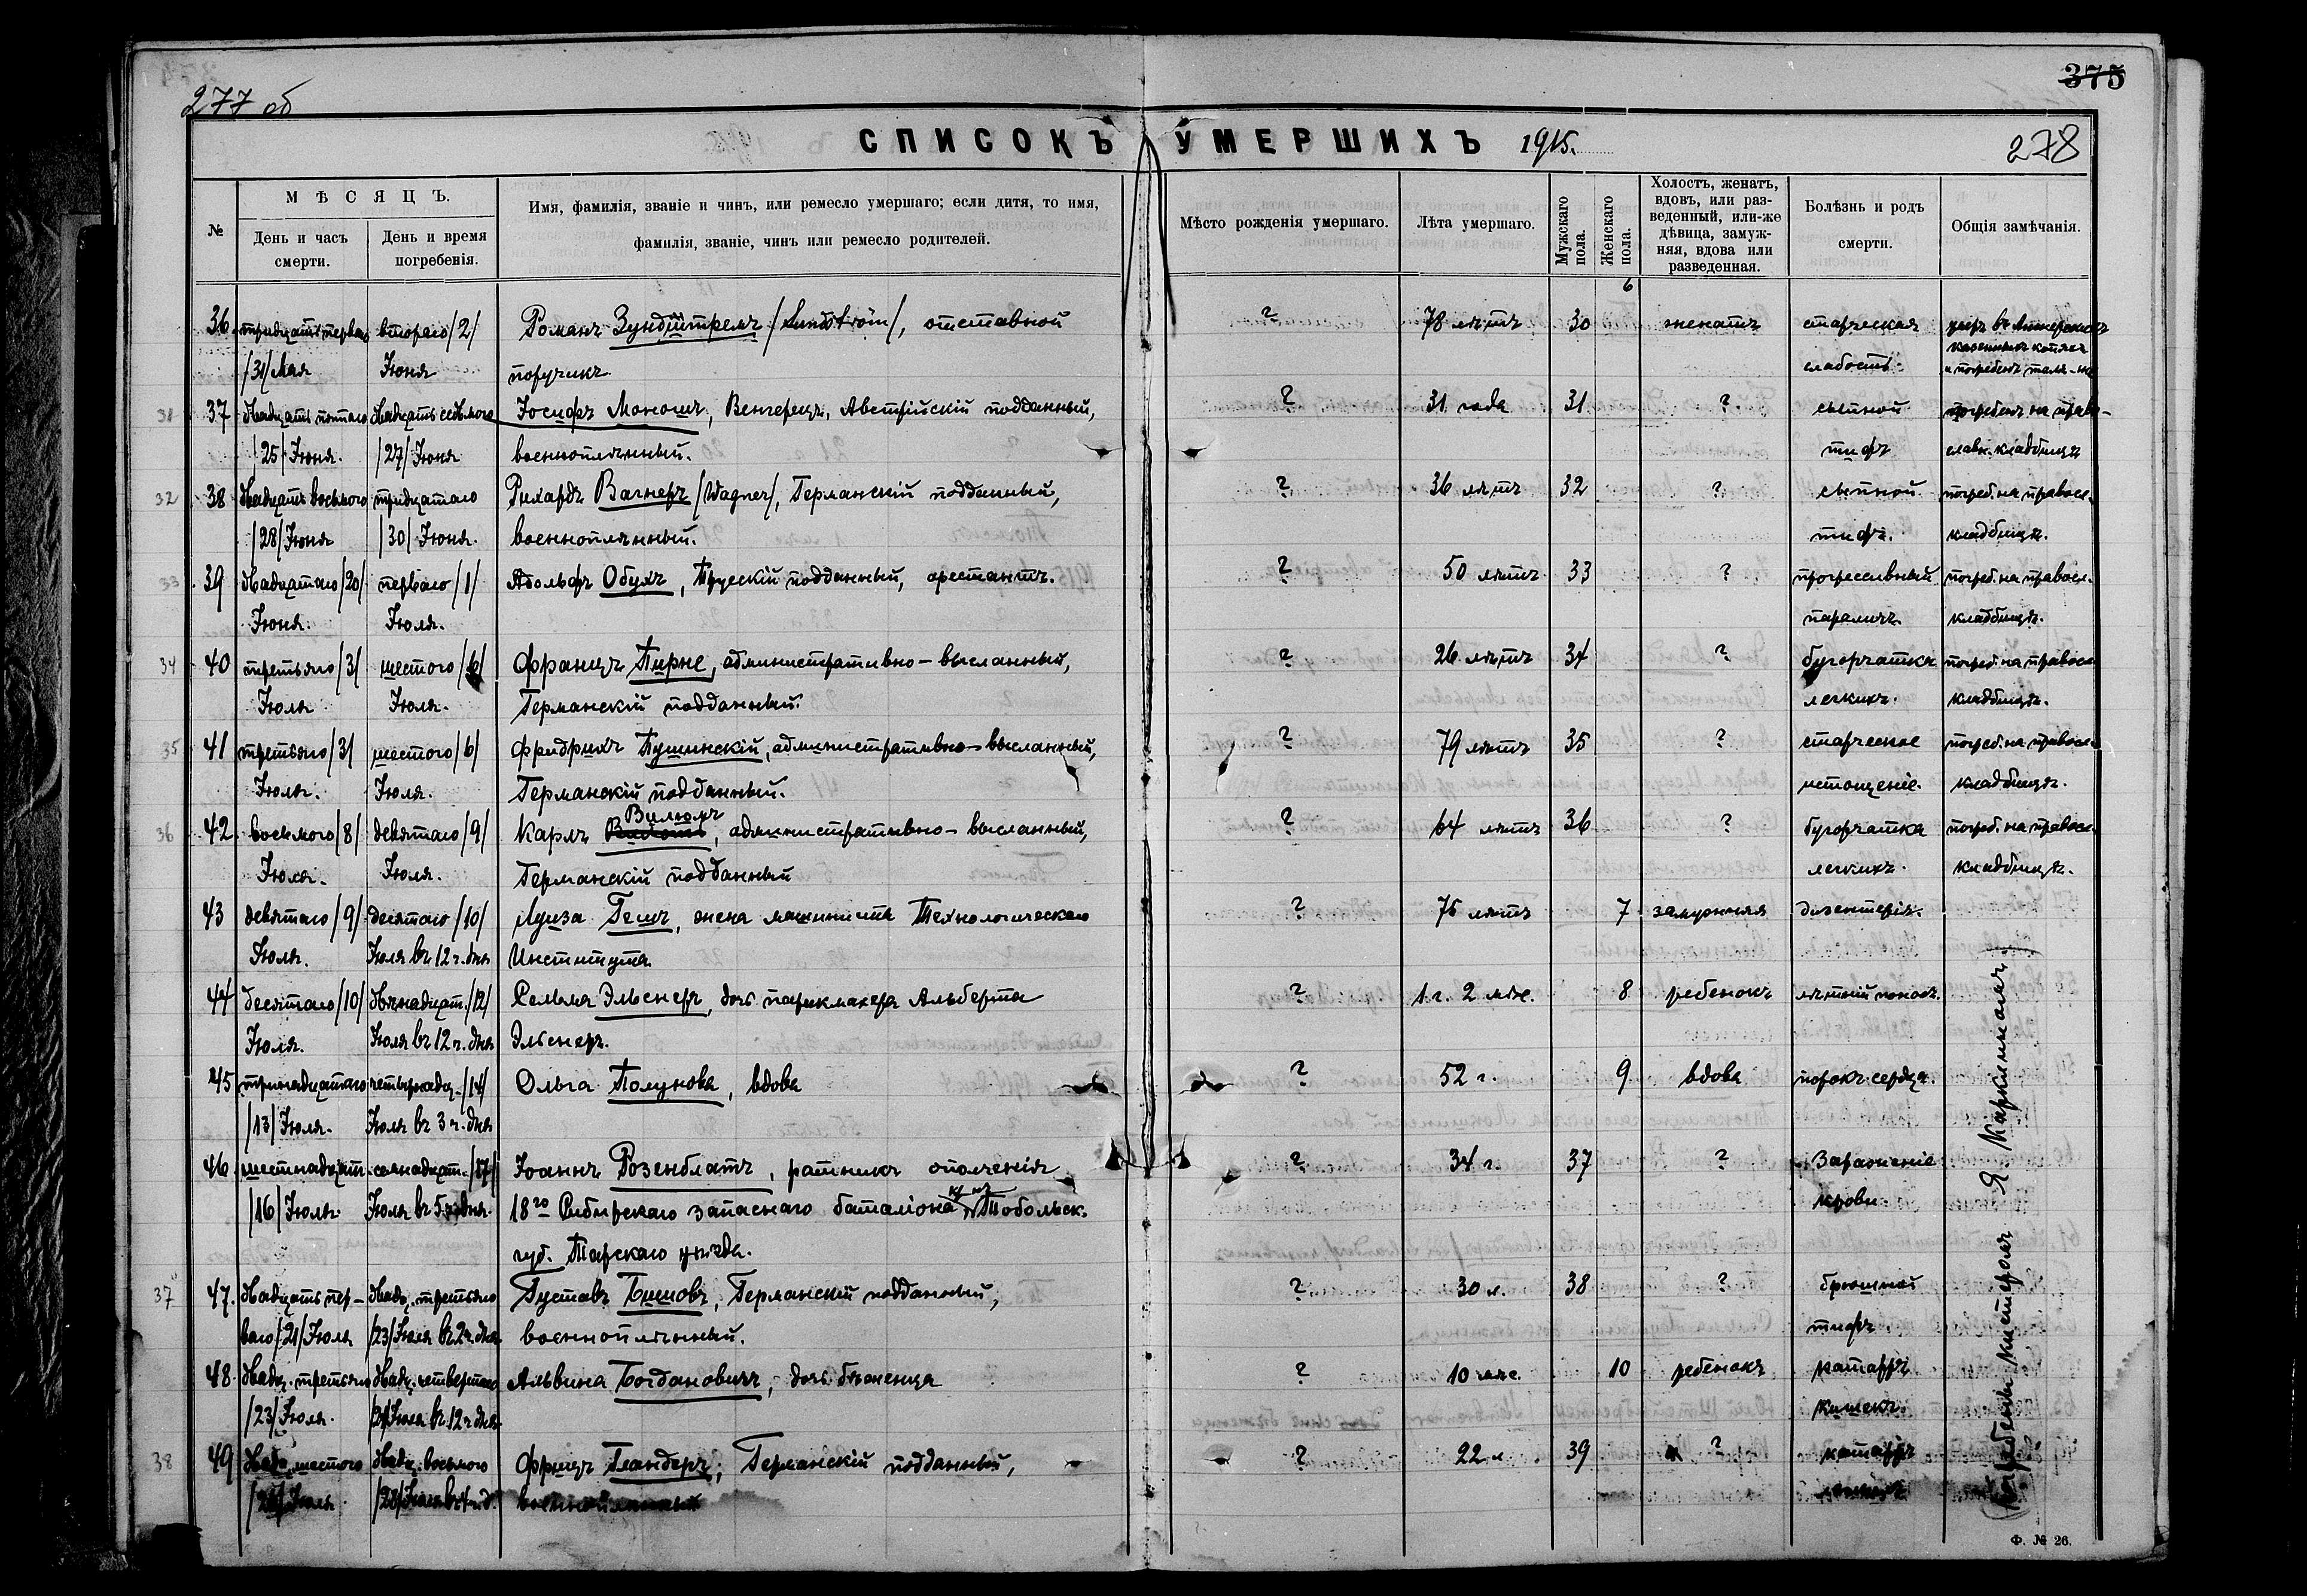 375
277 об
СПИСОКЪ УМЕРШИХЪ 1915.
278
№
МѢСЯЦЪ.
День и часъ смерти.
День и время погребенія.
Имя, фамилія, званіе и чинъ, или ремесло умершаго; если дитя, то имя,
фамилія, званіе, чинъ или ремесло родителей.
Мѣсто рожденія умершаго.
Лѣта умершаго.
Мужскаго пола.
Женскаго пола.
Холостъ, женатъ,
вдовъ, или раз-
веденный, или-же
дѣвица, замуж-
няя, вдова или
разведенная.
Болѣзнь и родъ
смерти.
Общія замѣчанія.
6
36 тридцать перваго второго /2/ Романъ Зундштремъ /Sundström/, отставной ? 78 лѣтъ 30 женатъ старческая умеръ въ Анжерскихъ
казенныхъ копяхъ
/31/ Мая Іюня поручикъ. слабость и погребенъ тамъ-же
31 37 Двадцать пятаго Двадцать седьмого Іосифъ Моношъ, Венгерецъ, Австрійскій подданный, ? 31 года 31 ? сыпной погребенъ на право-
/25/ Іюня. /27/ Іюня военноплѣнный. тифъ славн. кладбищѣ
32 38 Двадцать восьмого тридцатаго Рихардъ Вагнеръ /Wagner/, Германскій подданный, ? 36 лѣтъ 32 ? сыпной погреб. на правосл.
/28/ Іюня /30/ Іюня. военноплѣнный. тифъ. кладбищѣ.
33 39 Двадцатаго /20/ перваго /1/ Адольфъ Обухъ, Прусскій подданный, арестантъ. ? 50 лѣтъ 33 ? прогрессивный погреб. на правосл.
Іюня. Іюля. параличъ. кладбищѣ.
34 40 третьяго /3/ шестого /6/ Францъ Пирне, административно-высланный, ? 26 лѣтъ 34 ? бугорчатка погреб. на правосл.
Іюля Іюля. Германскій подданный. легкихъ. кладбищѣ.
35 41 третьяго /3/ шестого /6/ Фридрихъ Пушинскій, административно-высланный, ? 79 лѣтъ 35 ? старческое погреб. на правосл.
Іюля. Іюля. Германскій подданный. истощеніе. кладбищѣ.
Вилюмъ
36 42 восьмого /8/ девятаго /9/ Карлъ, административно-высланный, ? 64 лѣтъ 36 ? бугорчатка погреб. на правосл.
Іюля. Іюля. Германскій подданный легкихъ. кладбищѣ.
43 девятаго /9/ десятаго /10/ Луиза Гешъ, жена машиниста Технологическаго ? 75 лѣтъ 7 замужняя дизентерія.
Іюля. Іюля въ 12 ч. дня Института
44 десятаго /10/ двѣнадцат. /12/ Сельма Эльснеръ, дочь парикмахера Альберта ? 1 г. 2 мѣс. 8 ребенокъ лѣтній поносъ.
Іюля. Іюля въ 12 ч. дня Эльснеръ.
45 тринадцатаго четырнадц. /14/ Ольга Полунова, вдова ? 52 г. 9 вдова порокъ сердца.
/13/ Іюля. Іюля въ 3 ч. дня
46 шестнадцат. семнадцат. /17/ Іоаннъ Розенблатъ, ратникъ ополченія ? 34 г. 37 ? Зараженіе
/16/ Іюля. Іюля въ 5 ч. дня. 18го Сибирскаго запаснаго баталіона, Тобольск. крови
губ. Тарскаго уѣзда.
37 47. Двадцать пер- Двадц. третьяго Густавъ Бишовъ, Германскій подданный, ? 30 л. 38 ? брюшной
ваго /21/ Іюля /23/ Іюля въ 2 ч. дня военноплѣнный. тифъ.
48 Двадц. третьяго Двадц. четвертаго Альвина Богдановичъ, дочь бѣженца ? 10 мѣс. 10 ребенокъ катарръ
/23/ Іюля. /24/ Іюля въ 12 ч. дня кишекъ.
38 49 Двадц. шестого Двадц. восьмого Фрицъ Гландеръ, Германскій подданный, ? 22 л. 39 ? катарръ
/26/ Іюля. /28/ Іюля въ 4 ч. д. военноплѣнный
Погребенiя кистеромъ Я. Карклинъ
Ф. № 26.